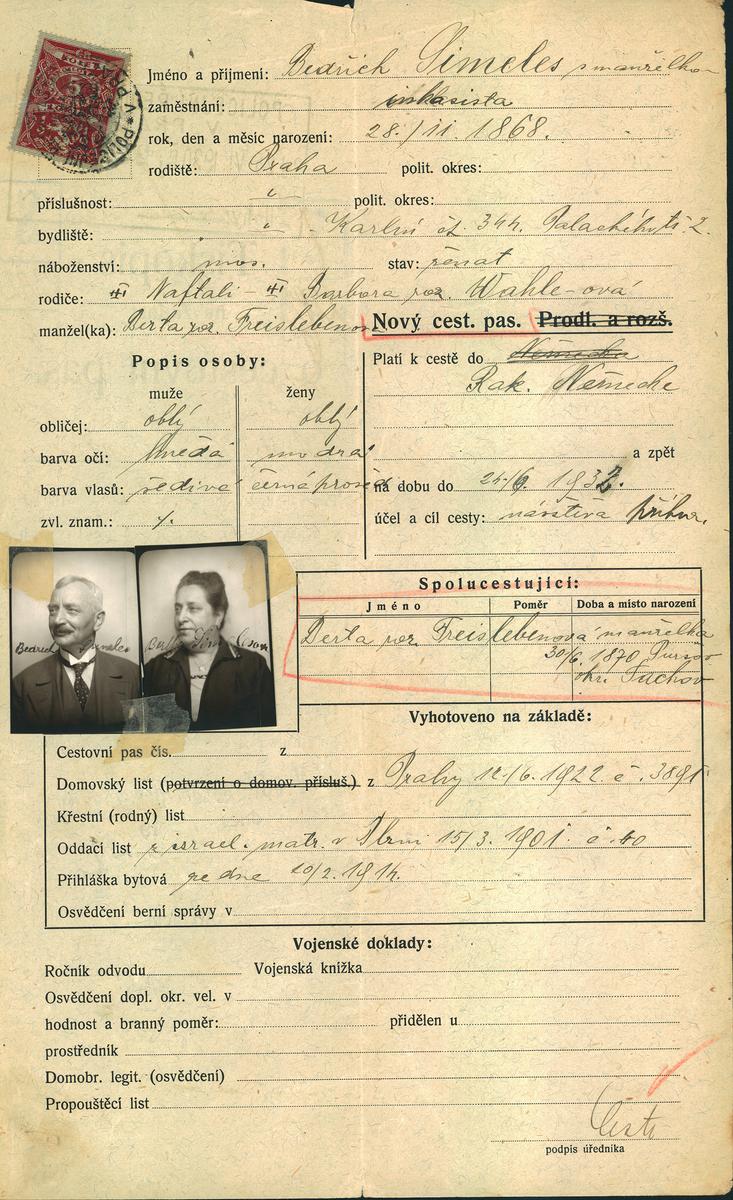 Jméno a příjmení: Bedřich Simeles s manželkou
zaměstnání: inkasista
rok, den a měsíc narození: 28./11. 1868.
rodiště: Praha polit. okres:
příslušnost: polit. okres:
bydliště: Karlín čl. 344. Palackého tř. 2.
náboženství: mos. stav: ženat
rodiče: Naftali - Barbara roz. Wahle-ová
manžel(ka): Berta roz. Freislebenova
Nový cest. pas. Prodl. a rozš.
Popis osoby:
muže ženy
obličej: oblý oblý
barva očí: hnědá modrá
barva vlasů: šedivé černá prosed
zvl. znam.: %.
Platí k cestě do Německa
Rak. Německa
a zpět
na dobu do 24/6 1932.
účel a cíl cesty: návštěva příbuz.
Bedrich Simeles Berta Simelesova
Spolucestující:
Jméno Poměr Doba a místo narození
Berta roz. Freislebenová manželka
30/6. 1870
okr.
Vyhotoveno na základě:
Cestovní pas čís. z
Domovský list (potvrzení o domov. přísluš.) z Prahy 12./6. 1922 č. 3891
Křestní (rodný) list
Oddací list z israel. matr. v Plzni 15/3. 1901. č. 40
Přihláška bytová ze dne 20/2. 1914.
Osvědčení berní správy v
Vojenské doklady:
Ročník odvodu Vojenská knížka
Osvědčení dopl. okr. vel. v
hodnost a branný poměr: přidělen u
prostředník
Domobr. legit. (osvědčení)
Propouštěcí list
podpis úředníka